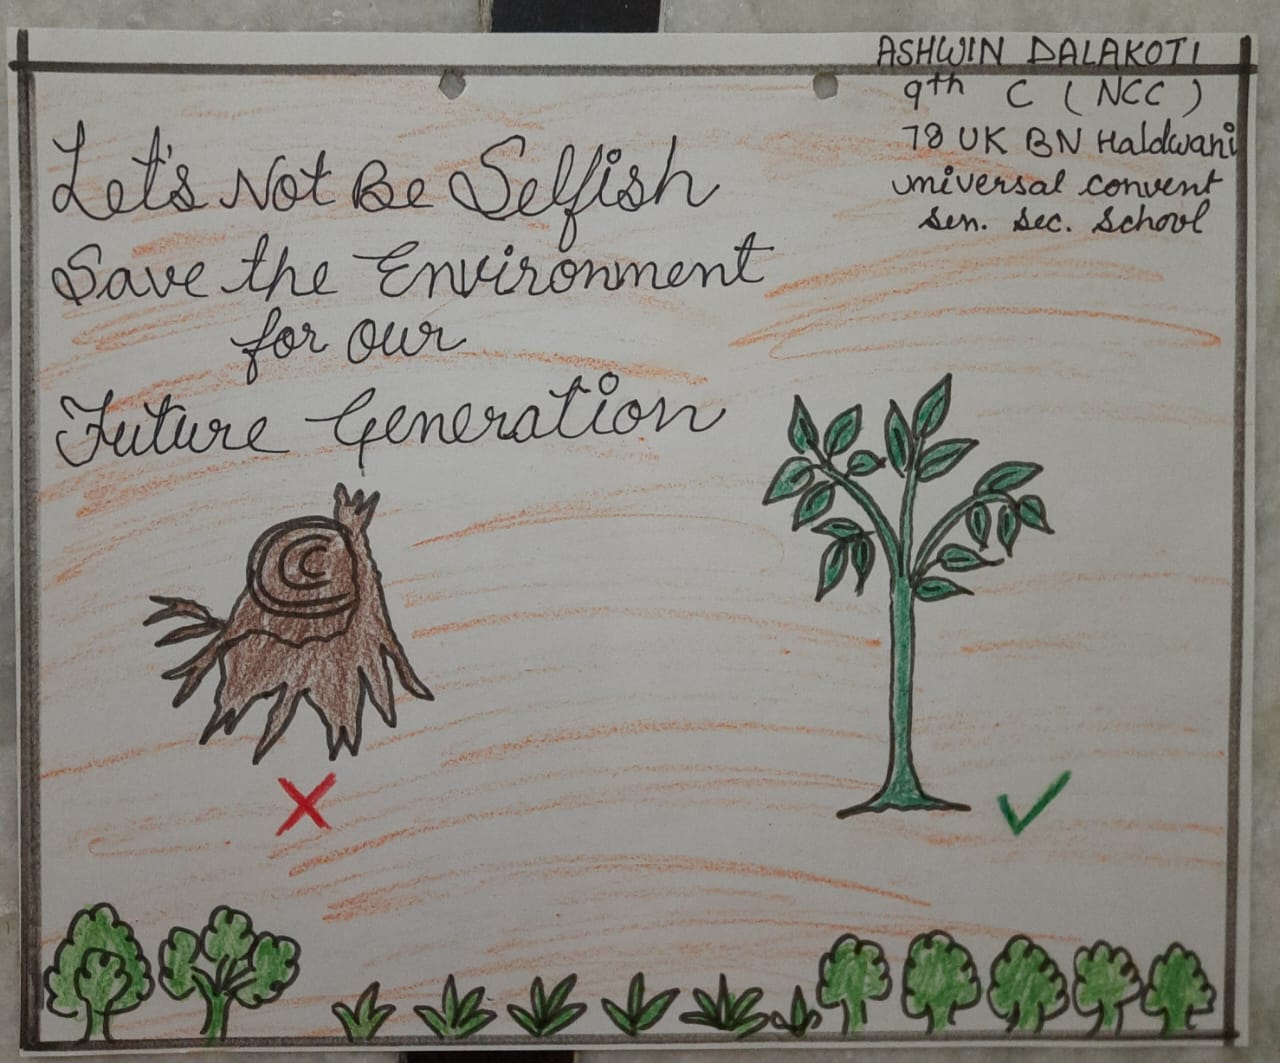 ASHWIN DALAKOTI
9th C (NCC)
78 UK BN Haldwani
universal convent
sen. sec. school
Let's Not Be Selfish
Save the Environment
for our
Future Generation